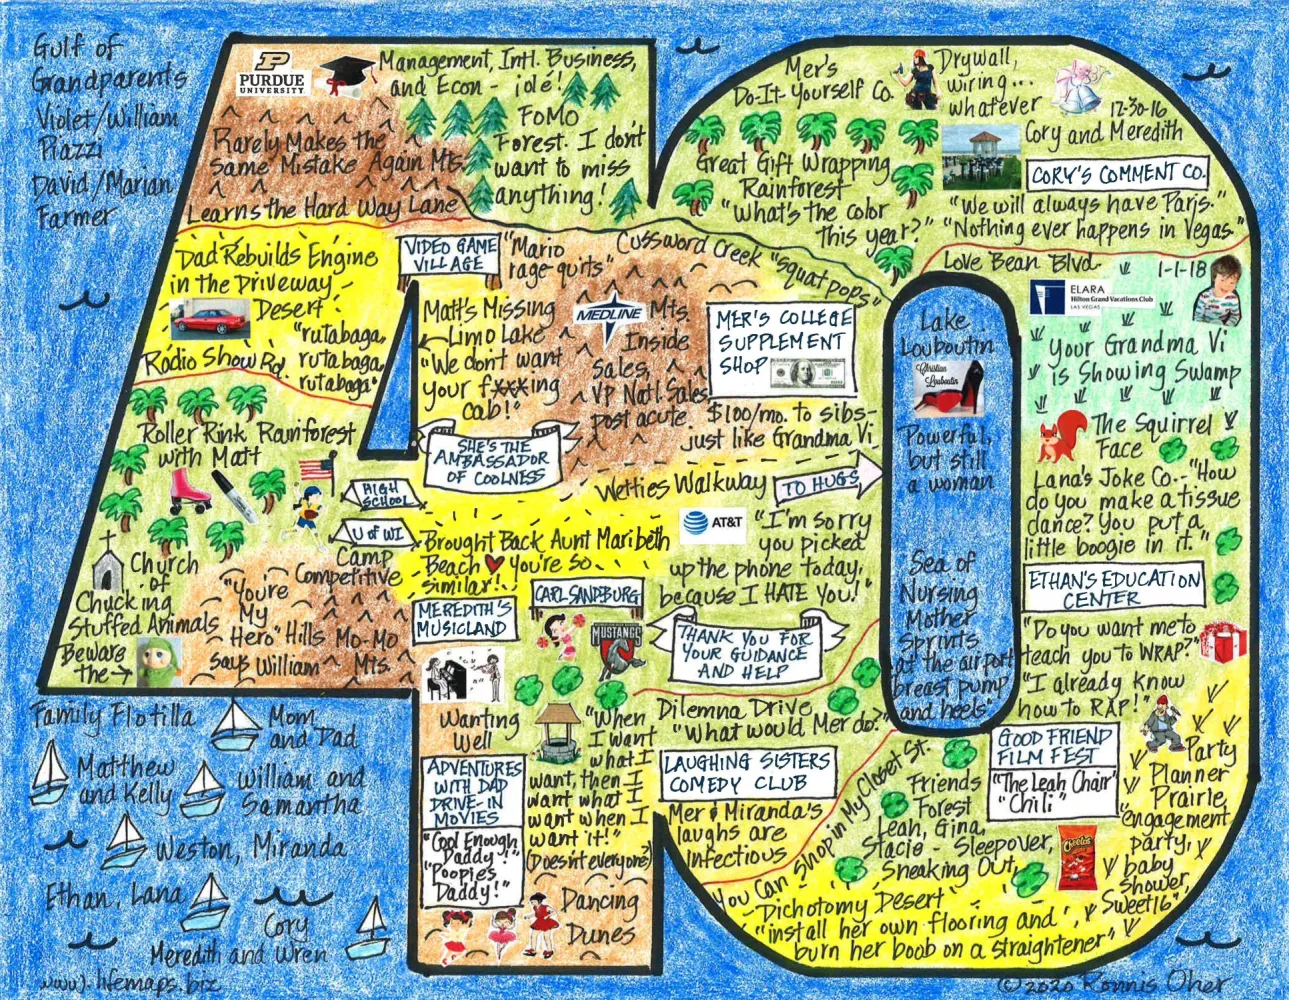 Gulf of
Grandparents
Violet/William
Piazzi
David/Marian
Farmer
P
PURDUE
UNIVERSITY
Management, Intl. Business,
and Econ - iole!
FoMo
Forest. I don't
want to miss
anything!
Rarely Makes the
Same Mistake Again Mts.
Learns the Hard Way Lane
Mer's
Do-It-Yourself Co.
Drywall,
wiring...
whatever
12-30-16
Cory and Meredith
Great Gift Wrapping
Rainforest
"What's the color
this year?"
CORY'S COMMENT CO.
"We will always have Paris."
"Nothing ever happens in Vegas"
Dad Rebuilds Engine
in the Driveway
Desert
"rutabaga,
rutabaga,
rutabaga"
Radio Show Rd.
VIDEO GAME
VILLAGE
"Mario
rage-quits"
Cussword Creek "squat pops"
Matt's Missing
Limo Lake
"We don't want
your f***ing
cab!"
MEDLINE
Mts.
Inside
Sales,
VP Nat'l Sales
post acute
MER'S COLLEGE
SUPPLEMENT
SHOP
$100/mo. to sibs-
just like Grandma Vi
Love Bean Blvd.
1-1-18
ELARA
Hilton Grand Vacations Club
LAS VEGAS
Your Grandma Vi
is Showing Swamp
Lake
Louboutin
Christian
Louboutin
Powerful,
but still
a woman
The Squirrel
Face
Lana's Joke Co.-"How
do you make a tissue
dance? You put a
little boogie in it."
Roller Rink Rainforest
with Matt
SHE'S THE
AMBASSADOR
OF COOLNESS
HIGH
SCHOOL
U of WI
Wetties Walkway
TO HUGS
Brought Back Aunt Maribeth
Beach you're so
similar!
AT&T
"I'm sorry
you picked
up the phone today,
because I HATE You!"
Church
of
Chucking
Stuffed Animals
Beware
the
Camp
Competitive
"You're
My
Hero" Hills
says William
Mo-Mo
Mts.
MEREDITH'S
MUSICLAND
CARL SANDBURG
MUSTANGS
THANK YOU FOR
YOUR GUIDANCE
AND HELP
Sea of
Nursing
Mother
Sprints
at the airport
breast pump
and heels"
ETHAN'S EDUCATION
CENTER
"Do you want me to
teach you to WRAP?"
"I already know
how to RAP!"
Family Flotilla
Mom
and Dad
Matthew
and Kelly
William and
Samantha
Weston, Miranda
Ethan, Lana
Cory
Meredith and Wren
Wanting
Well
"When
I want
what I
want, then I
want what I
want when I
want it!"
(Doesn't everyone?)
Dilemna Drive
"What would Mer do?"
ADVENTURES
WITH DAD
DRIVE-IN
MOVIES
"Cool Enough
Daddy!"
"Poopies
Daddy!"
LAUGHING SISTERS
COMEDY CLUB
Mer & Miranda's
laughs are
infectious
Dancing
Dunes
You Can Shop in My Closet St.
Friends
Forest
Leah, Gina,
Stacie - Sleepover,
Sneaking Out,
Cheetos
GOOD FRIEND
FILM FEST
"The Leah Chair"
"Chili"
Party
Planner
Prairie,
"engagement
party,
baby
shower,
Sweet 16"
Dichotomy Desert
"install her own flooring and
burn her boob on a straightener"
www.lifemaps.biz
©2020 Ronnis Oher